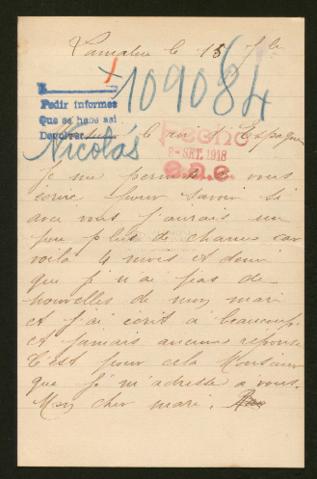 Lamalou le 15 7bre
1
109084
Pedir informes
Que se hace así
Devolver
Nicolás
d'Espagne
8- SET. 1918
e.a.c.
Je me permets vous
écrire pour savoir si
avec vous j'aurais un
peu plus de chance car
voilà 4 mois et demi
que je n'ai pas de
nouvelles de mon mari
et j'ai écrit a beaucoup
et jamais aucune réponse
C'est pour cela Monsieur
que je m'adresse a vous.
Mon cher mari.